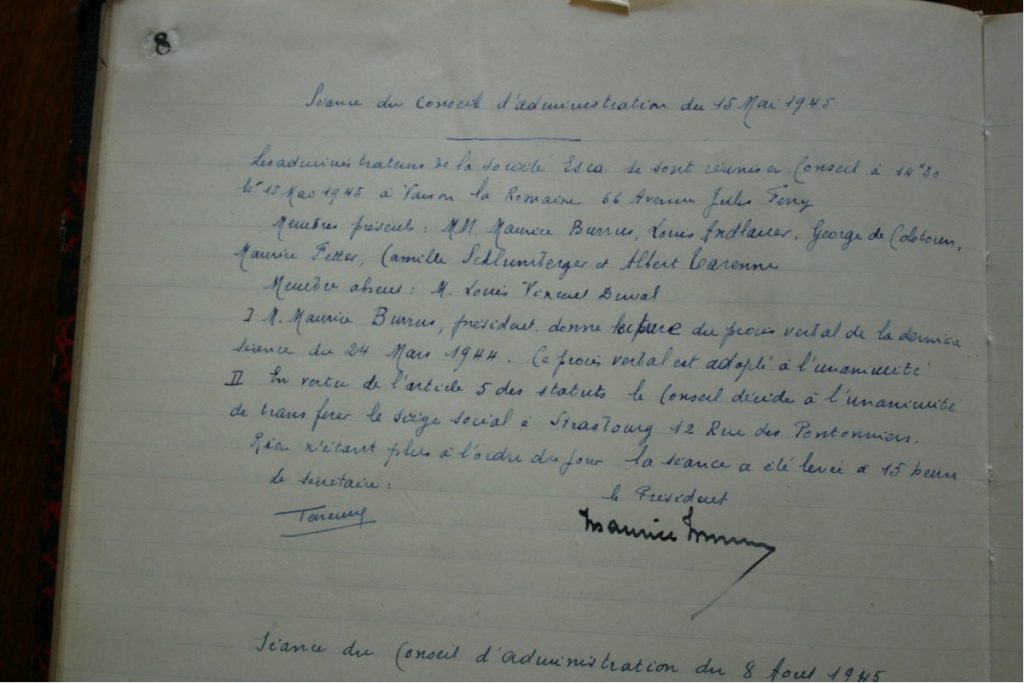 8
Séance du Conseil d'administration du 15 Mai 1945
Les administrateurs de la Société Esca se sont réunis en Conseil à 14h30
le 15 Mai 1945 à Vaison la Romaine 66 Avenue Jules Ferry
Membres présents : MM. Maurice Burrus, Louis Andlauer, George de
Maurice Fetter, Camille Schlumberger et Albert Tarenne
Membre absent : M. Louis Vincent Duval
I M. Maurice Burrus, président donne lecture du procès verbal de la dernière
séance du 24 Mars 1944. Ce procès verbal est adopté à l'unanimité
II En vertu de l'article 5 des statuts le Conseil décide à l'unanimité
de transférer le siège social à Strasbourg 12 Rue des Pontonniers.
Rien n'étant plus à l'ordre du jour la séance a été levée à 15 heure
Le secrétaire : le Président
Tarenne Maurice Burrus
Séance du Conseil d'Administration du 8 Aout 1945